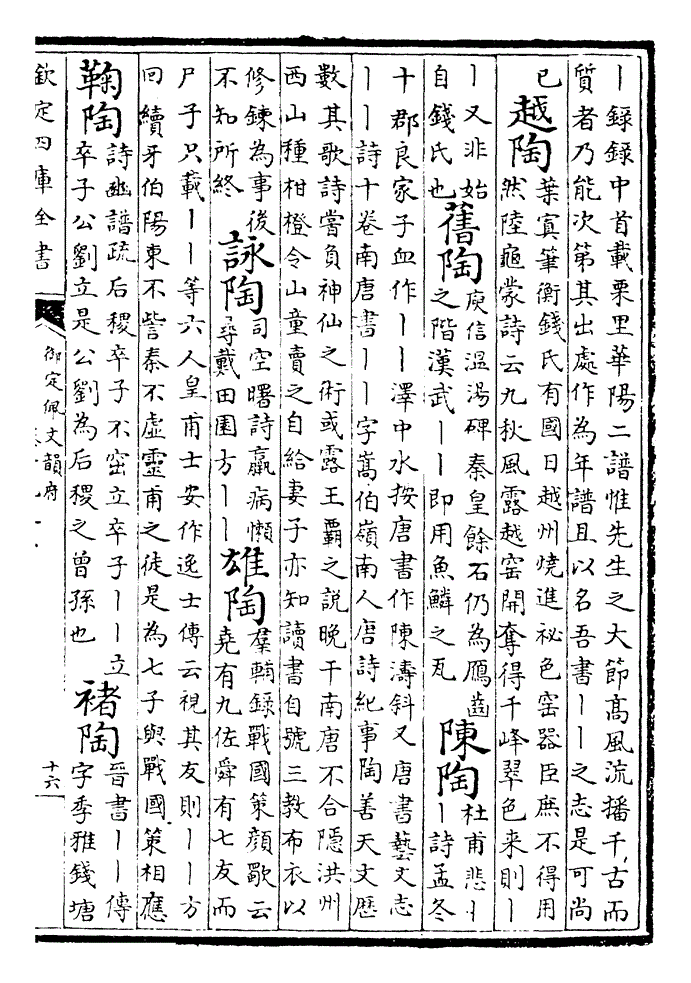 丨錄錄中首載栗里華陽二譜惟先生之大節髙風流播千古而
質者乃能次第其出處作為年譜且以名吾書丨丨之志是可尚
已
越陶
葉寘筆衡錢氏有國日越州燒進祕色窑器臣庶不得用
然陸龜蒙詩云九秋風露越窑開奪得千峰翠色来則丨
丨又非始
自錢氏也
舊陶
庾信温湯碑秦皇餘石仍為鴈齒
之階漢武丨丨即用魚鱗之瓦
陳陶
杜甫悲丨
丨詩孟冬
十郡良家子血作丨丨澤中水按唐書作陳濤斜又唐書藝文志
丨丨詩十卷南唐書丨丨字嵩伯嶺南人唐詩紀事陶善天文歷
數其歌詩嘗負神仙之術或露王覇之説晚干南唐不合隱洪州
西山種柑橙令山童賣之自給妻子亦知讀書自號三教布衣以
修鍊為事後
不知所終
詠陶
司空曙詩羸病懶
尋戴田園方丨丨
雄陶
羣輔錄戰國策顔歜云
堯有九佐舜有七友而
尸子只載丨丨等六人皇甫士安作逸士傳云視其友則丨丨方
回續牙伯陽東不訾秦不虛靈甫之徒是為七子與戰國策相應
鞠陶
詩豳譜疏后稷卒子不窋立卒子丨丨立
卒子公劉立是公劉為后稷之曾孫也
褚陶
晉書丨丨傳
字季雅錢塘
欽定四庫全書
御定佩文韻府
十六